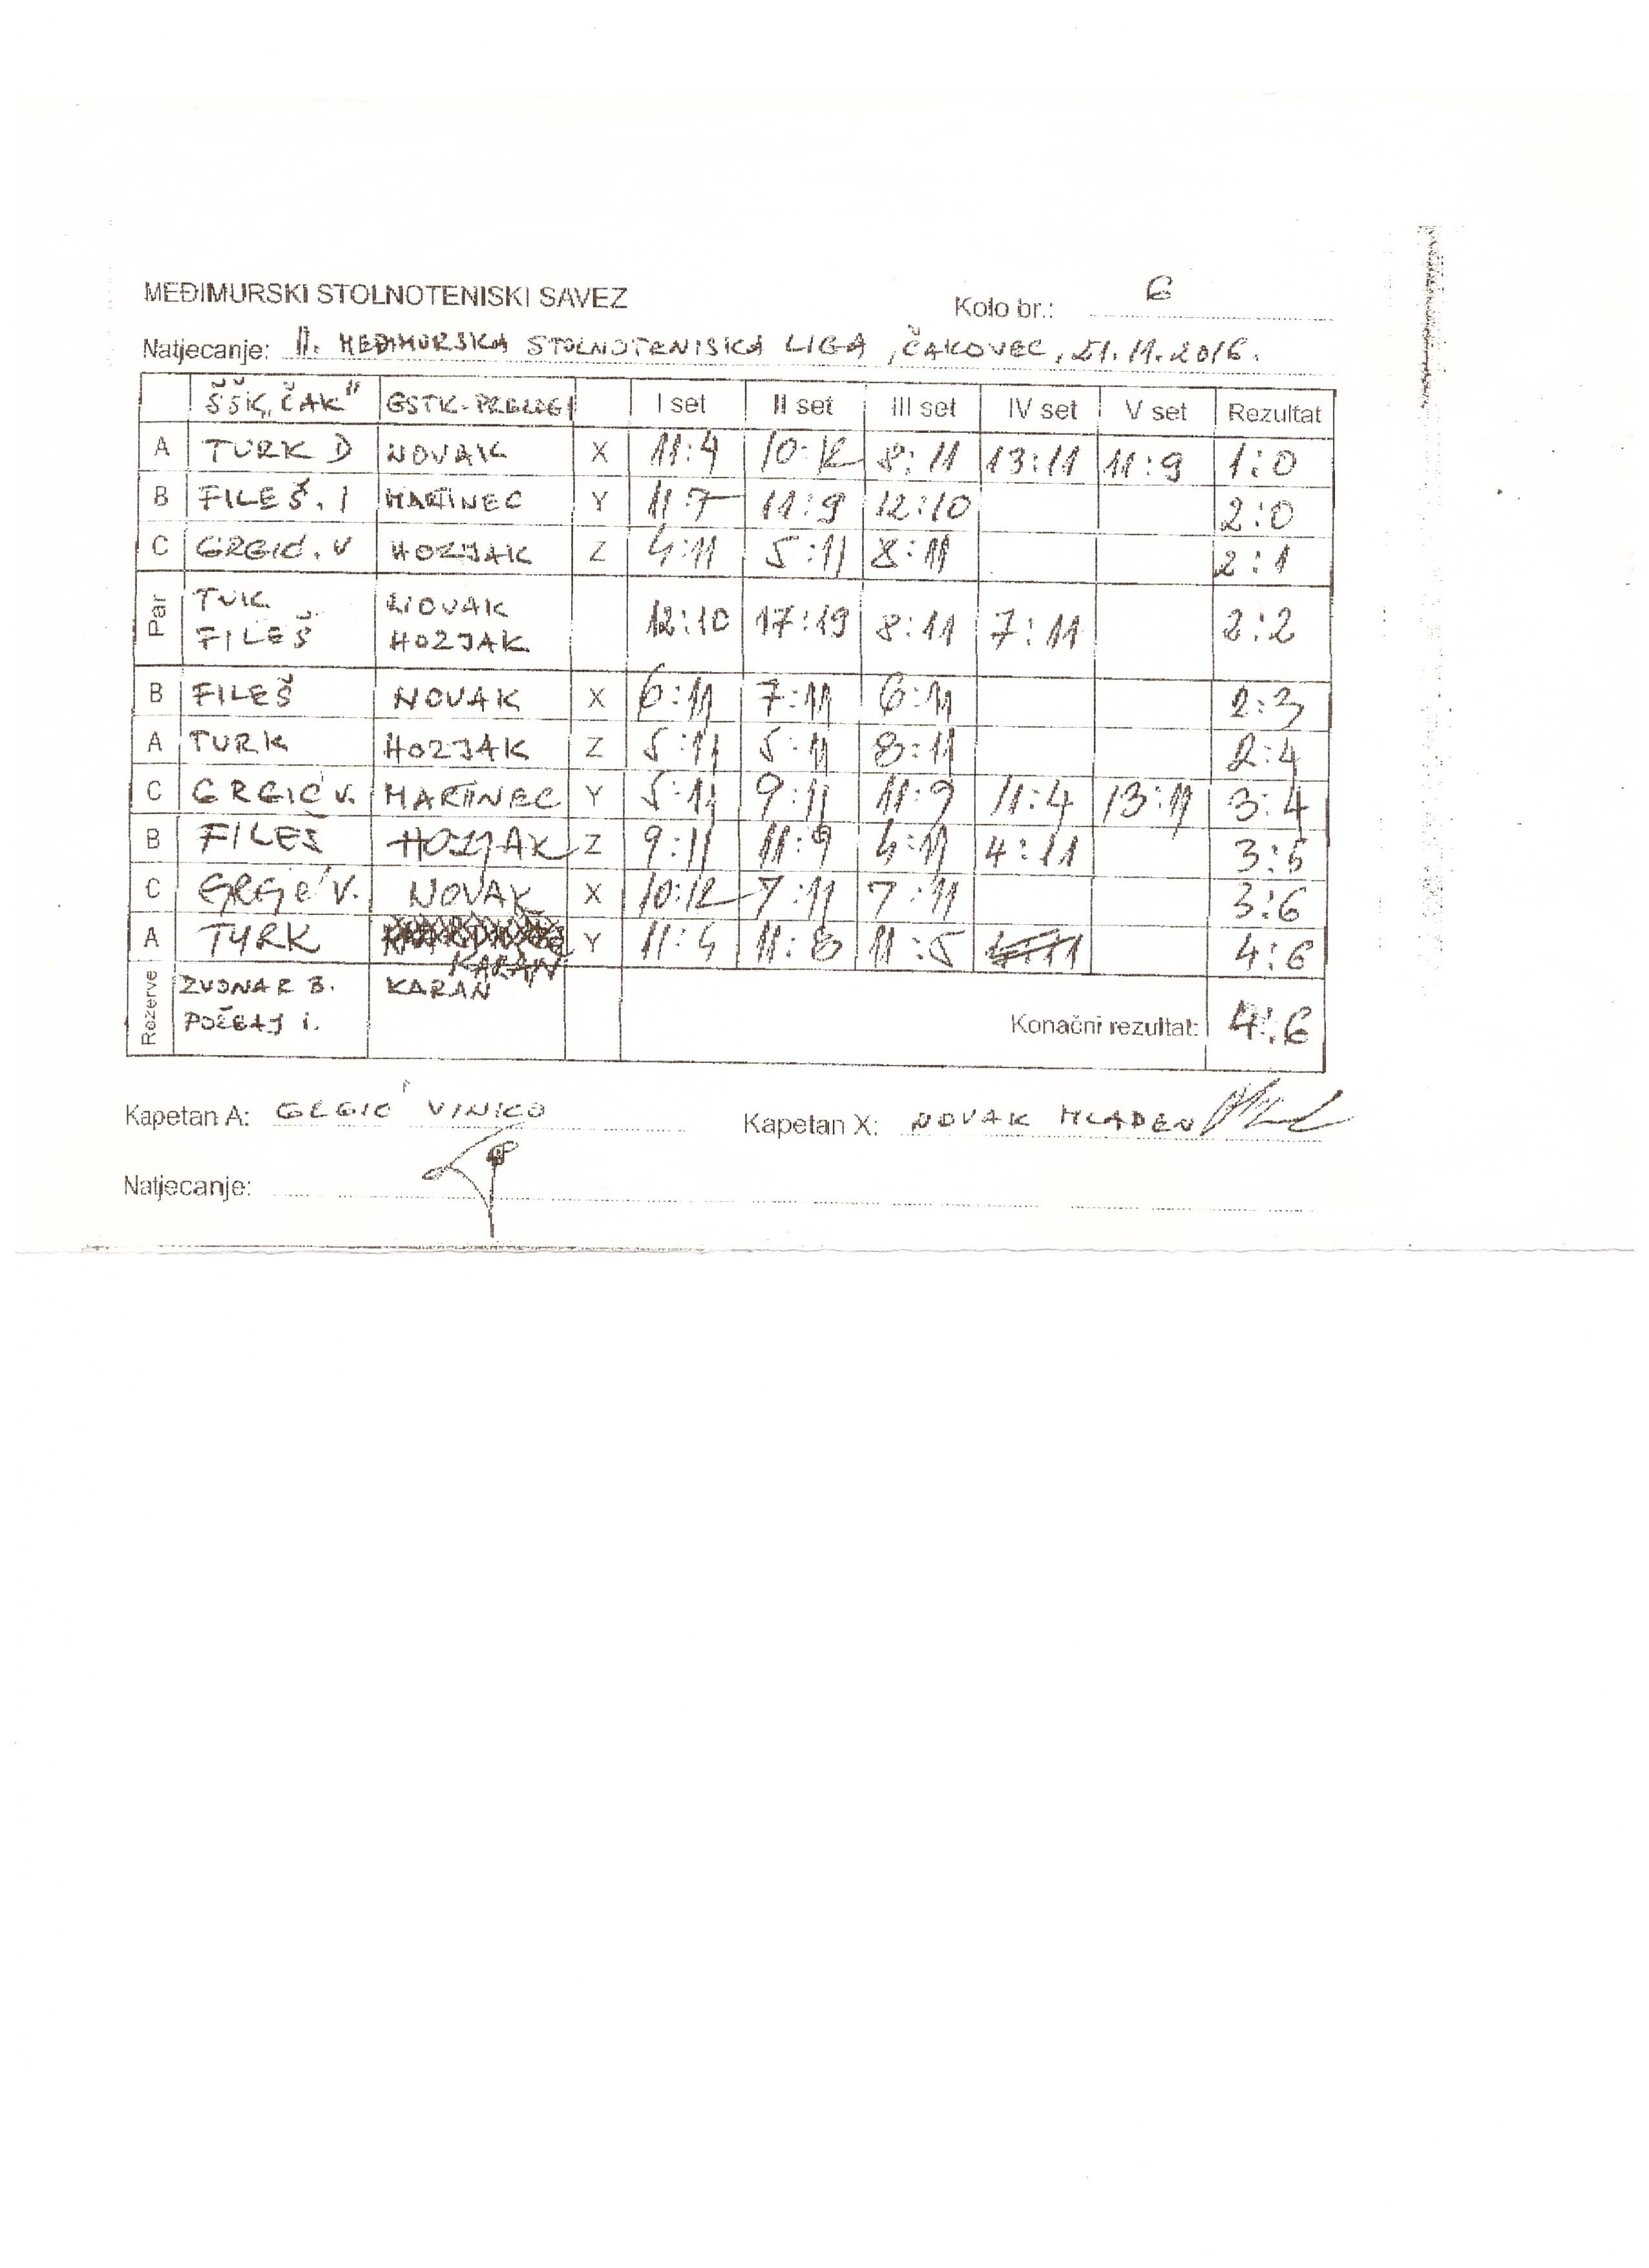 MEĐIMURSKI STOLNOTENISKI SAVEZ
Kolo br.: 6
Natjecanje: II. MEĐIMURSKA STOLNOTENISKA LIGA, ČAKOVEC, 21.11.2016.
ŠŠK „ČAK" GSTK-PRELOG I set II set III set IV set V set Rezultat
A TURK D NOVAK X 11:4 10:12 8:11 13:11 11:9 1:0
B FILEŠ. I MARTINEC Y 11:7 11:9 12:10 2:0
C GRGIĆ. V HOZJAK Z 4:11 5:11 8:11 2:1
Par TUK NOVAK
FILEŠ HOZJAK 12:10 17:19 8:11 7:11 2:2
B FILEŠ NOVAK X 6:11 7:11 6:11 2:3
A TURK HOZJAK Z 5:11 5:11 8:11 2:4
C GRGIĆ V. MARTINEC Y 5:11 9:11 11:9 11:4 13:11 3:4
B FILEŠ HOZJAK Z 9:11 11:9 4:11 4:11 3:5
C GRGIĆ V. NOVAK X 10:12 7:11 7:11 3:6
A TURK KARAN Y 11:4 11:8 11:5 4:6
Rezerve ZVONAR B. KARAN
POČEAJ i. Konačni rezultat: 4:6
Kapetan A: GRGIĆ VINKO Kapetan X: NOVAK MLADEN
Natjecanje: